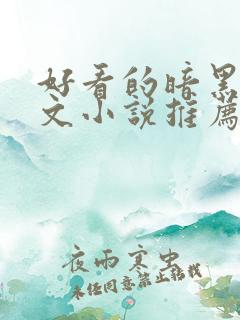 好看的暗黑
文小说推薦
夜雨寒虫
未经同意禁止转载